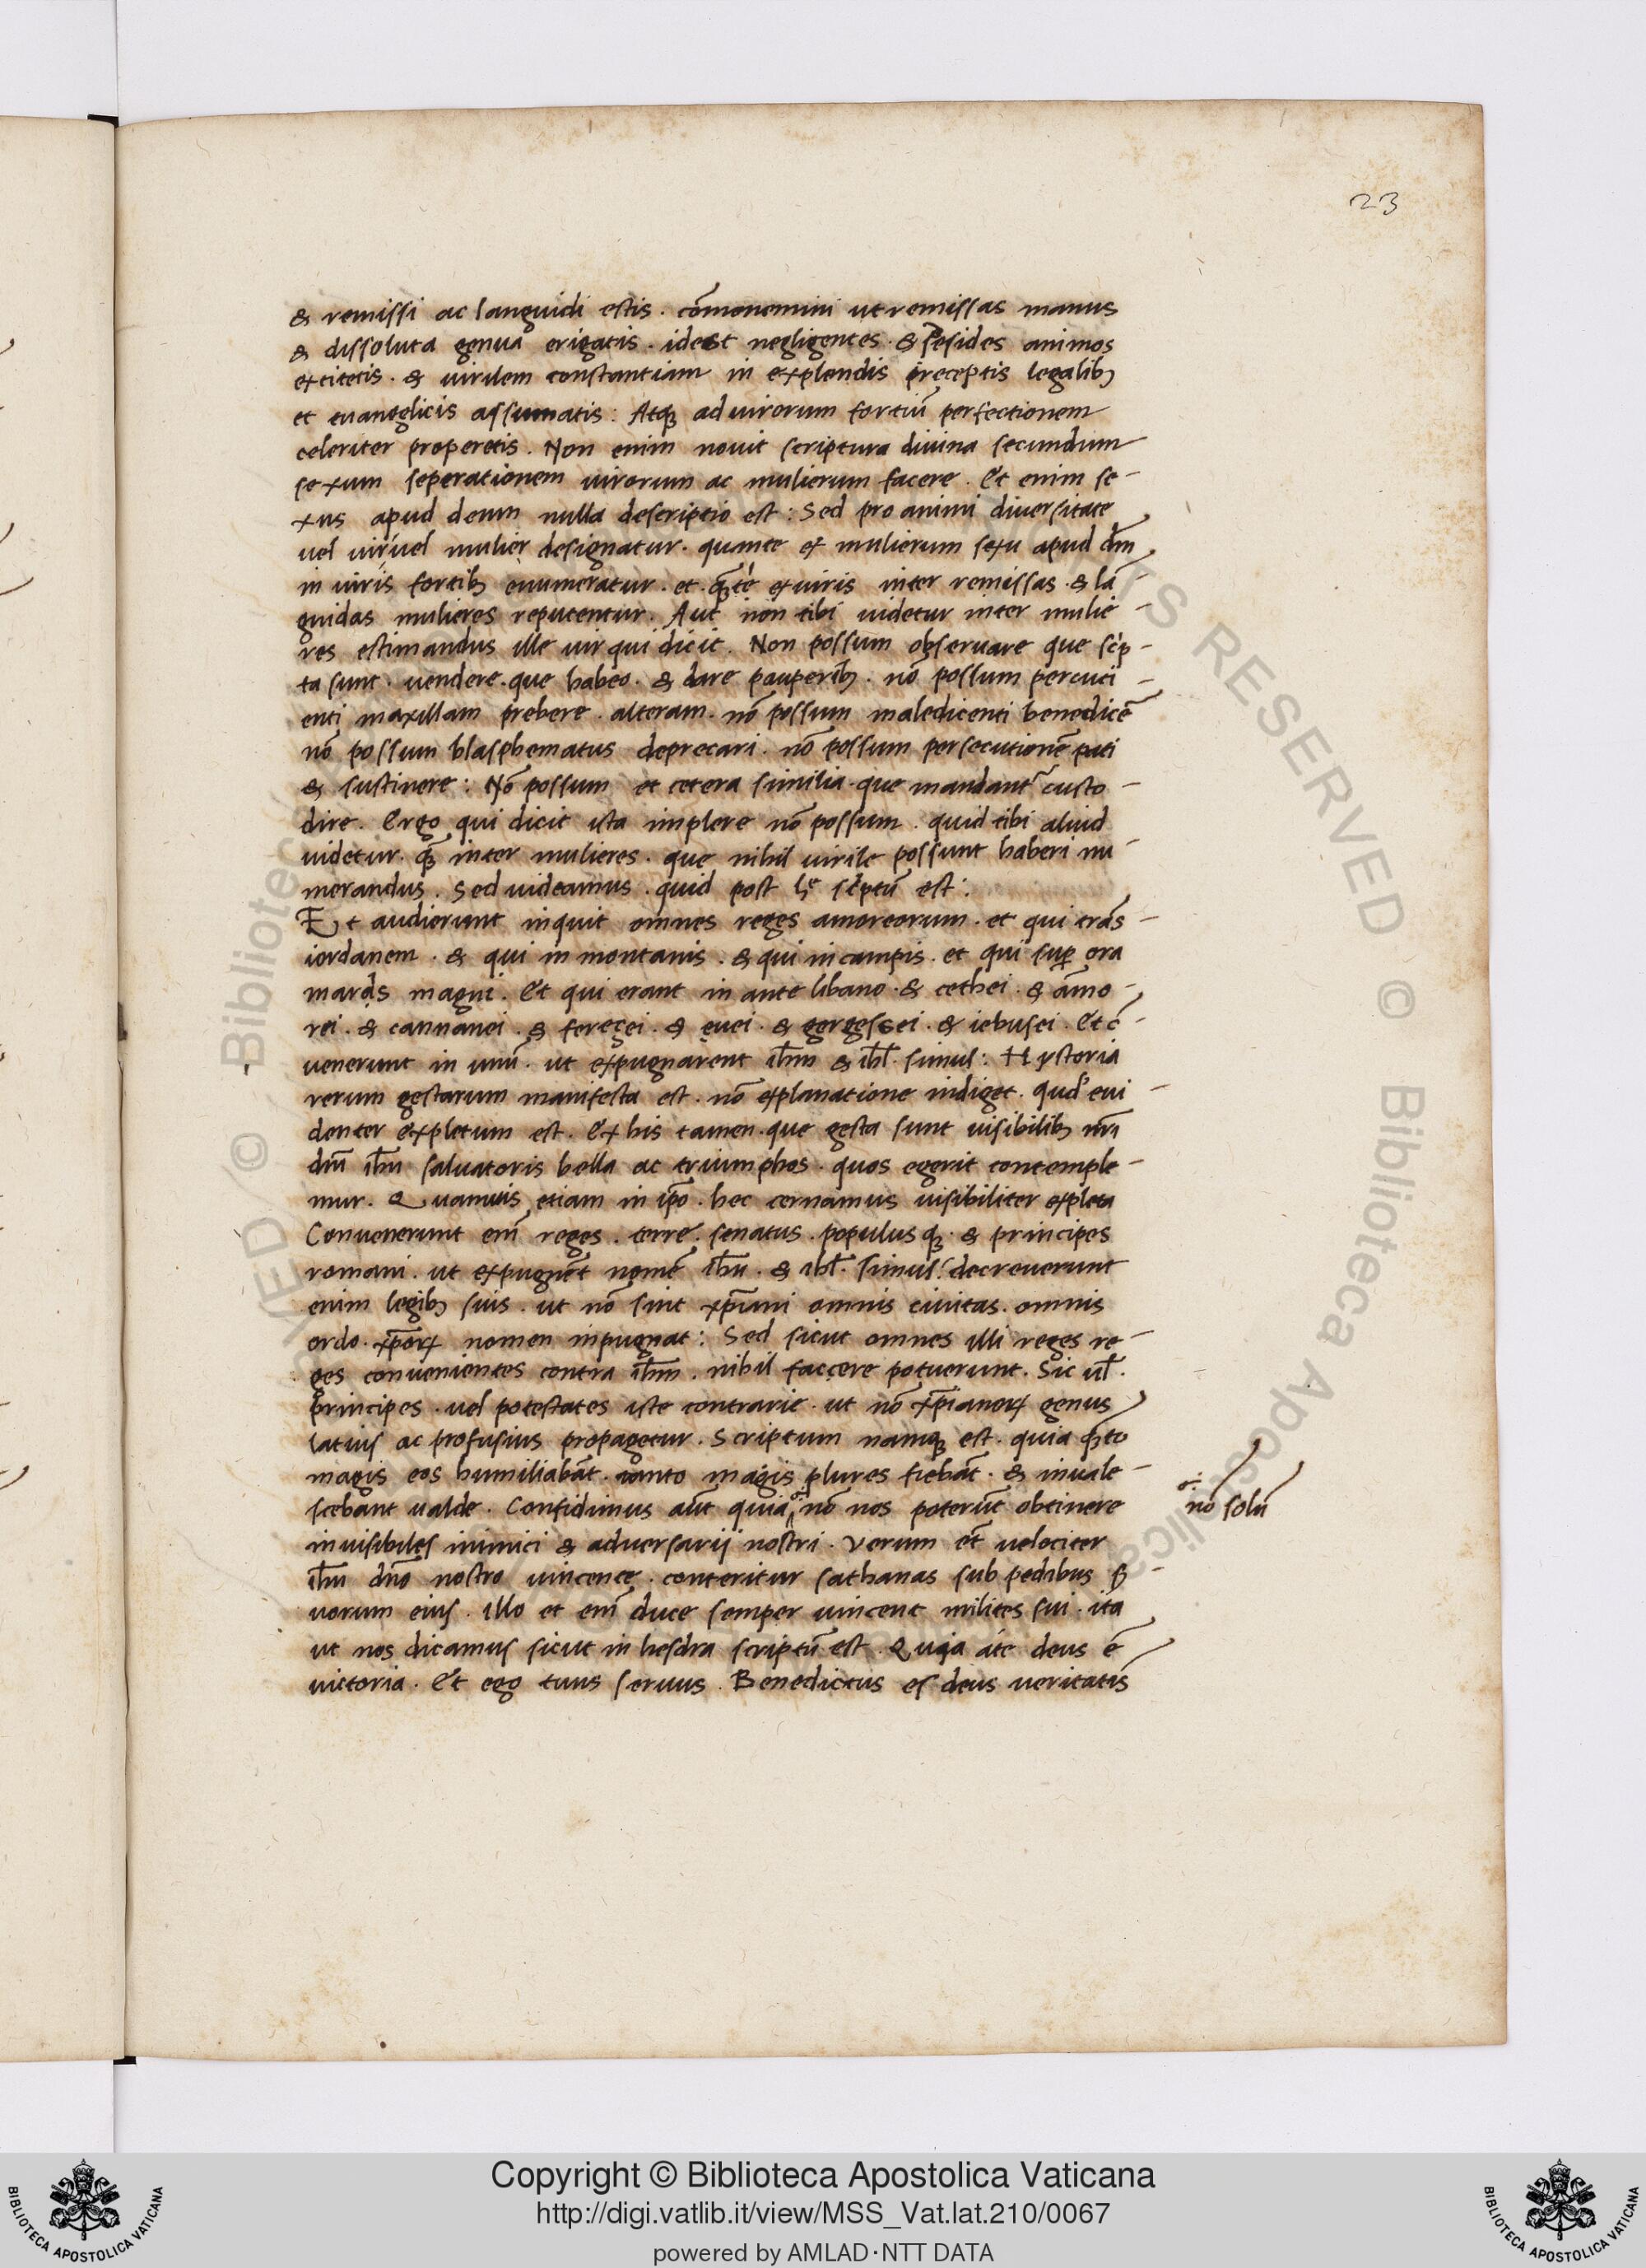 23
& remissi ac languidi estis . cōmonemini ut remissas manus
& dissoluta genua erigatis . idest negligentes . & resides animos
excitetis . & uirilem constantiam in explendis preceptis legalib;
et euangelicis assumatis : Atq; ad uirorum fortiū perfectionem
celeriter properetis . Non enim nouit scriptura diuina secundum
sexum seperationem uirorum ac mulierum facere . Et enim se-
xus apud deum nulla descriptio est : Sed pro animi diuersitate
uel uir uel mulier designatur . quante ex mulierum sexu apud dm̄
in uiris fortib; enumeratur . et . q̄te ex uiris inter remissas . & lā-
guidas mulieres reputentur . Aut non tibi uidetur inter mulie-
res estimandus ille uir qui dicit . Non possum obseruare que scrip-
ta sunt . uendere . que habeo . & dare pauperib; . nō possum percuci-
enti maxillam prebere . alteram . nō possum maledicenti benedicē
nō possum blasphematus deprecari . nō possum persecutionē pati
& sustinere : Nō possum et cetera similia . que mandant custo-
dire . Ergo qui dicit ista implere nō possum . quid tibi aliud
uidetur . q̄ inter mulieres . que nihil uirile possunt haberi nu-
merandus . Sed uideamus . quid post hͨ sc̄ptū est :
Et audierunt inquit omnes reges amoreorum . et qui trās-
iordanem . & qui in montanis . & qui in campis . et qui sup ora
maris magni . Et qui erant in ante libano . & cethei . & amo-
rei . & cannanei . & ferezei . & euei . & gergessei . & iebusei . Et c̄-
uenerunt in unū . ut expugnarent ih̄m & ih̄l . simul : Hystoria
rerum gestarum manifesta est . nō explanatione indiget . quod eui-
denter expletum est . Ex his tamen . que gesta sunt uisibilib; nr̄i
dn̄i ih̄u saluatoris bella ac triumphos . quos egerit contemple-
mur . Quamuis etiam in ip̄o . hec cernamus uisibiliter expleta
Conuenerunt em̄ reges . terre . senatus . populus q; . & principes
romani . ut expugnēt nomē ih̄u . & ih̄l . simul : decreuerunt
enim legib; suis . ut nō sint xp̄iani omnis ciuitas . omnis
ordo . xp̄or nomen inpugnat : Sed sicut omnes illi reges re-
ges conuenientes contra ih̄m . nihil faccere potuerunt . Sic ul̄ .
principes . uel potestates iste contrarie . ut nō xp̄ianor genus
latius ac profusius propagetur . Scriptum namq; est . quia q̄to
magis eos humiliabāt . tanto magis plures fiebāt . & inuale-
scebant ualde . Confidimus aut̄ quia nō nos poterūt obtinere
nō solū
inuisibiles inimici & aduersarij nostri . Verum et̄ uelociter
ih̄u dn̄o nostro uincente . conteritur sathanas sub pedibus s̄-
uorum eius . illo et em̄ duce semper uincent milites sui . ita
ut nos dicamus sicut in hesdra scriptū est . Quia a te deus ē
uictoria . Et ego tuus seruus . Benedictus es deus ueritatis
Copyright © Biblioteca Apostolica Vaticana
http://digi.vatlib.it/view/MSS_Vat.lat.210/0067
powered by AMLAD·NTT DATA
BIBLIOTECA APOSTOLICA VATICANA
BIBLIOTECA APOSTOLICA VATICANA